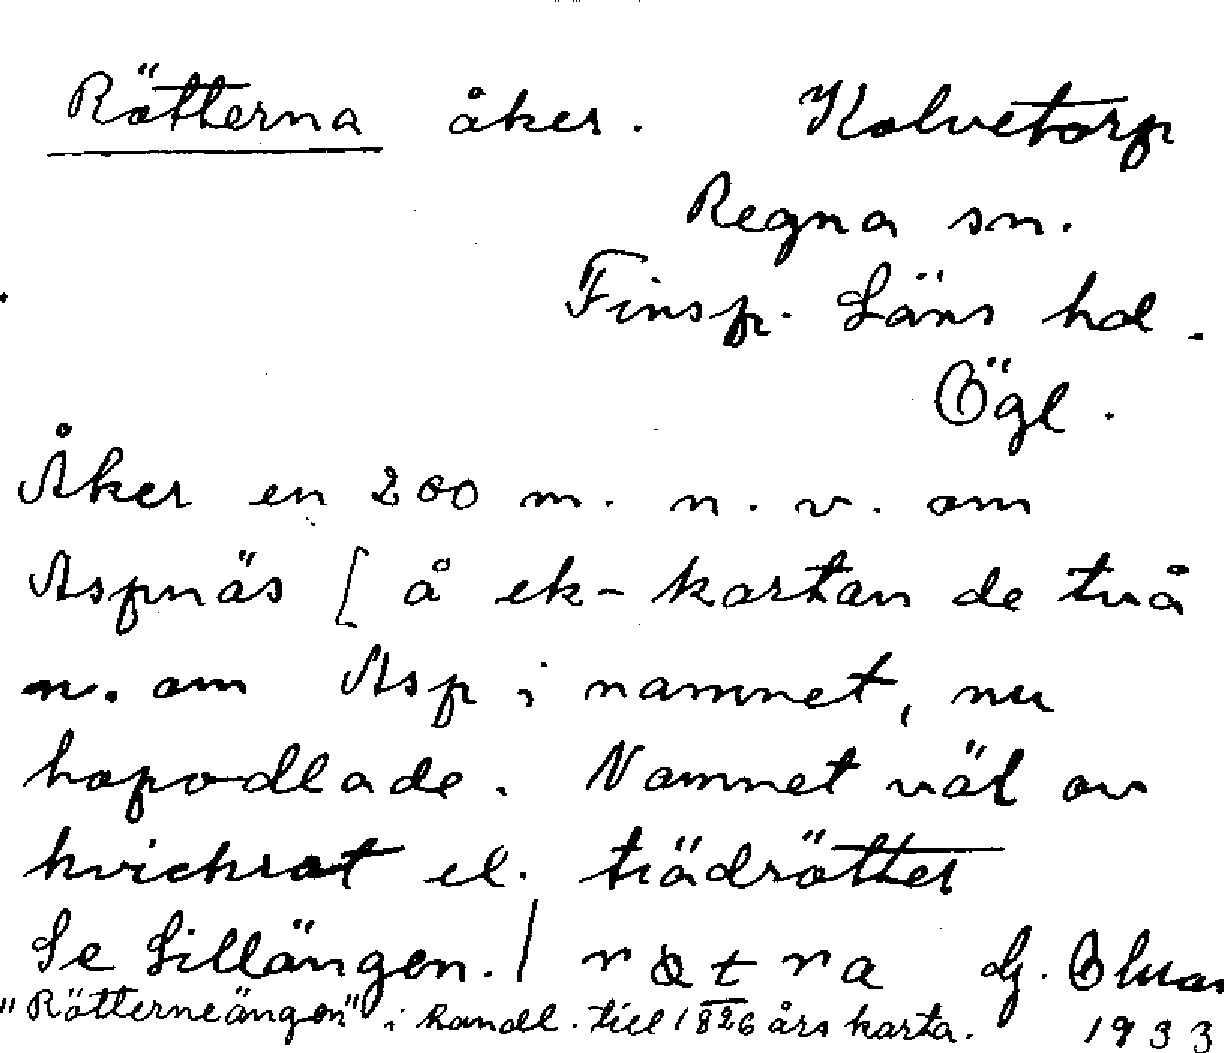 Rötterna åker. Kolvetorp
Regna sn.
Finsp. Läns hd.
Ögl.
Åker en 200 m. n. v. om
Aspnäs [ å ek-kartan de två
n. om Asp i namnet, nu
hopodlade. Namnet väl av
kvickrot el. trädrötter
Se Lillängen. /
"Rötterneängen" i handl. till 1826 års karta. 1933